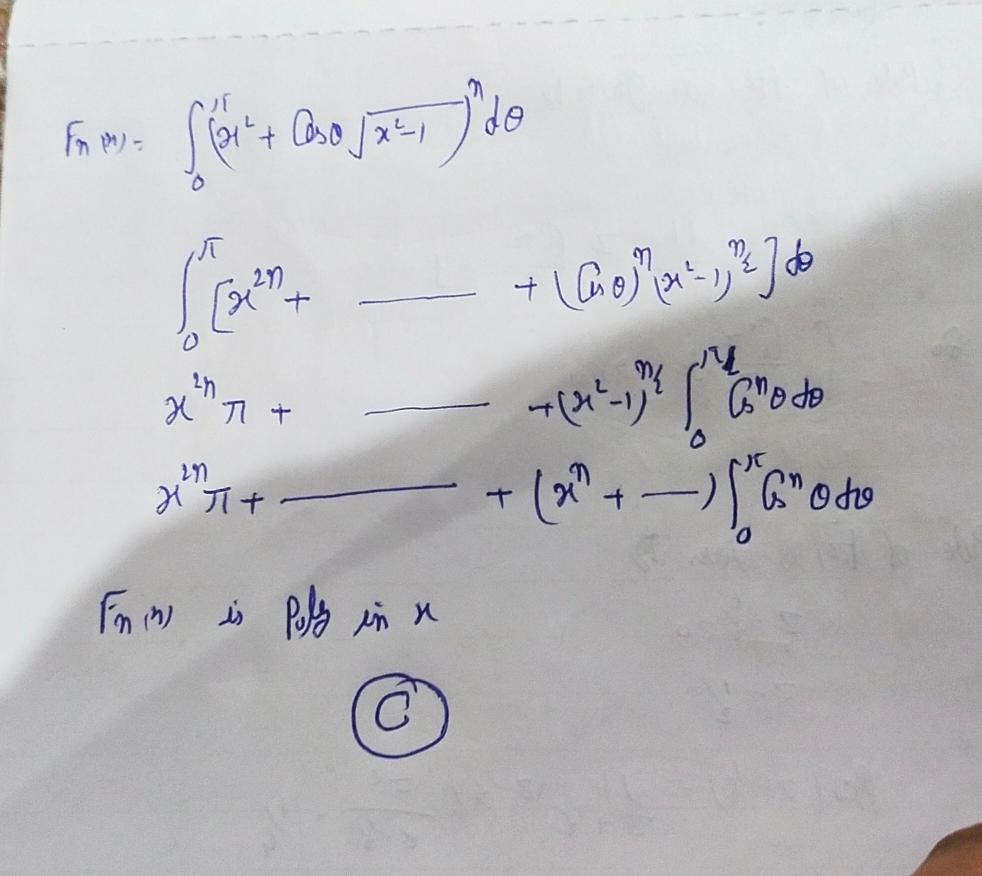 Fn(x) = ∫₀^π (x² + Cosθ √(x²-1))^n dθ
∫₀^π [x^{2n} + —— + (Cosθ)^n (x²-1)^{n/2}] dθ
x^{2n} π + —— + (x²-1)^{n/2} ∫₀^π Cos^n θ dθ
x^{2n} π + —— + (x^n + —) ∫₀^π Cos^n θ dθ
Fn(x) is Poly in x
C